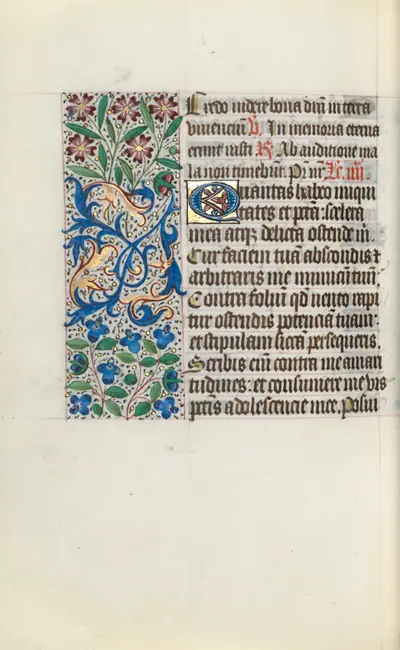 Credo videre bona dñi in terra
viuenciũ V. In memoria eterna
erunt iusti R. Ab auditione ma
la non timebũt. P̃. nr̃. Lc. iiij.
Quantas habeo iniqui
tates et pctã: scelera
mea atq; delicta ostende m̃.
Cur faciem tuã abscondis &
arbitraris me inimicũ tuũ.
Contra foliũ qd vento rapi
tur ostendis potenciã tuam:
et stipulam siccã persequeris.
Scribis eĩ contra me aman
tudines: et consumere me vis
pctĩs adolescencie mee. Posui